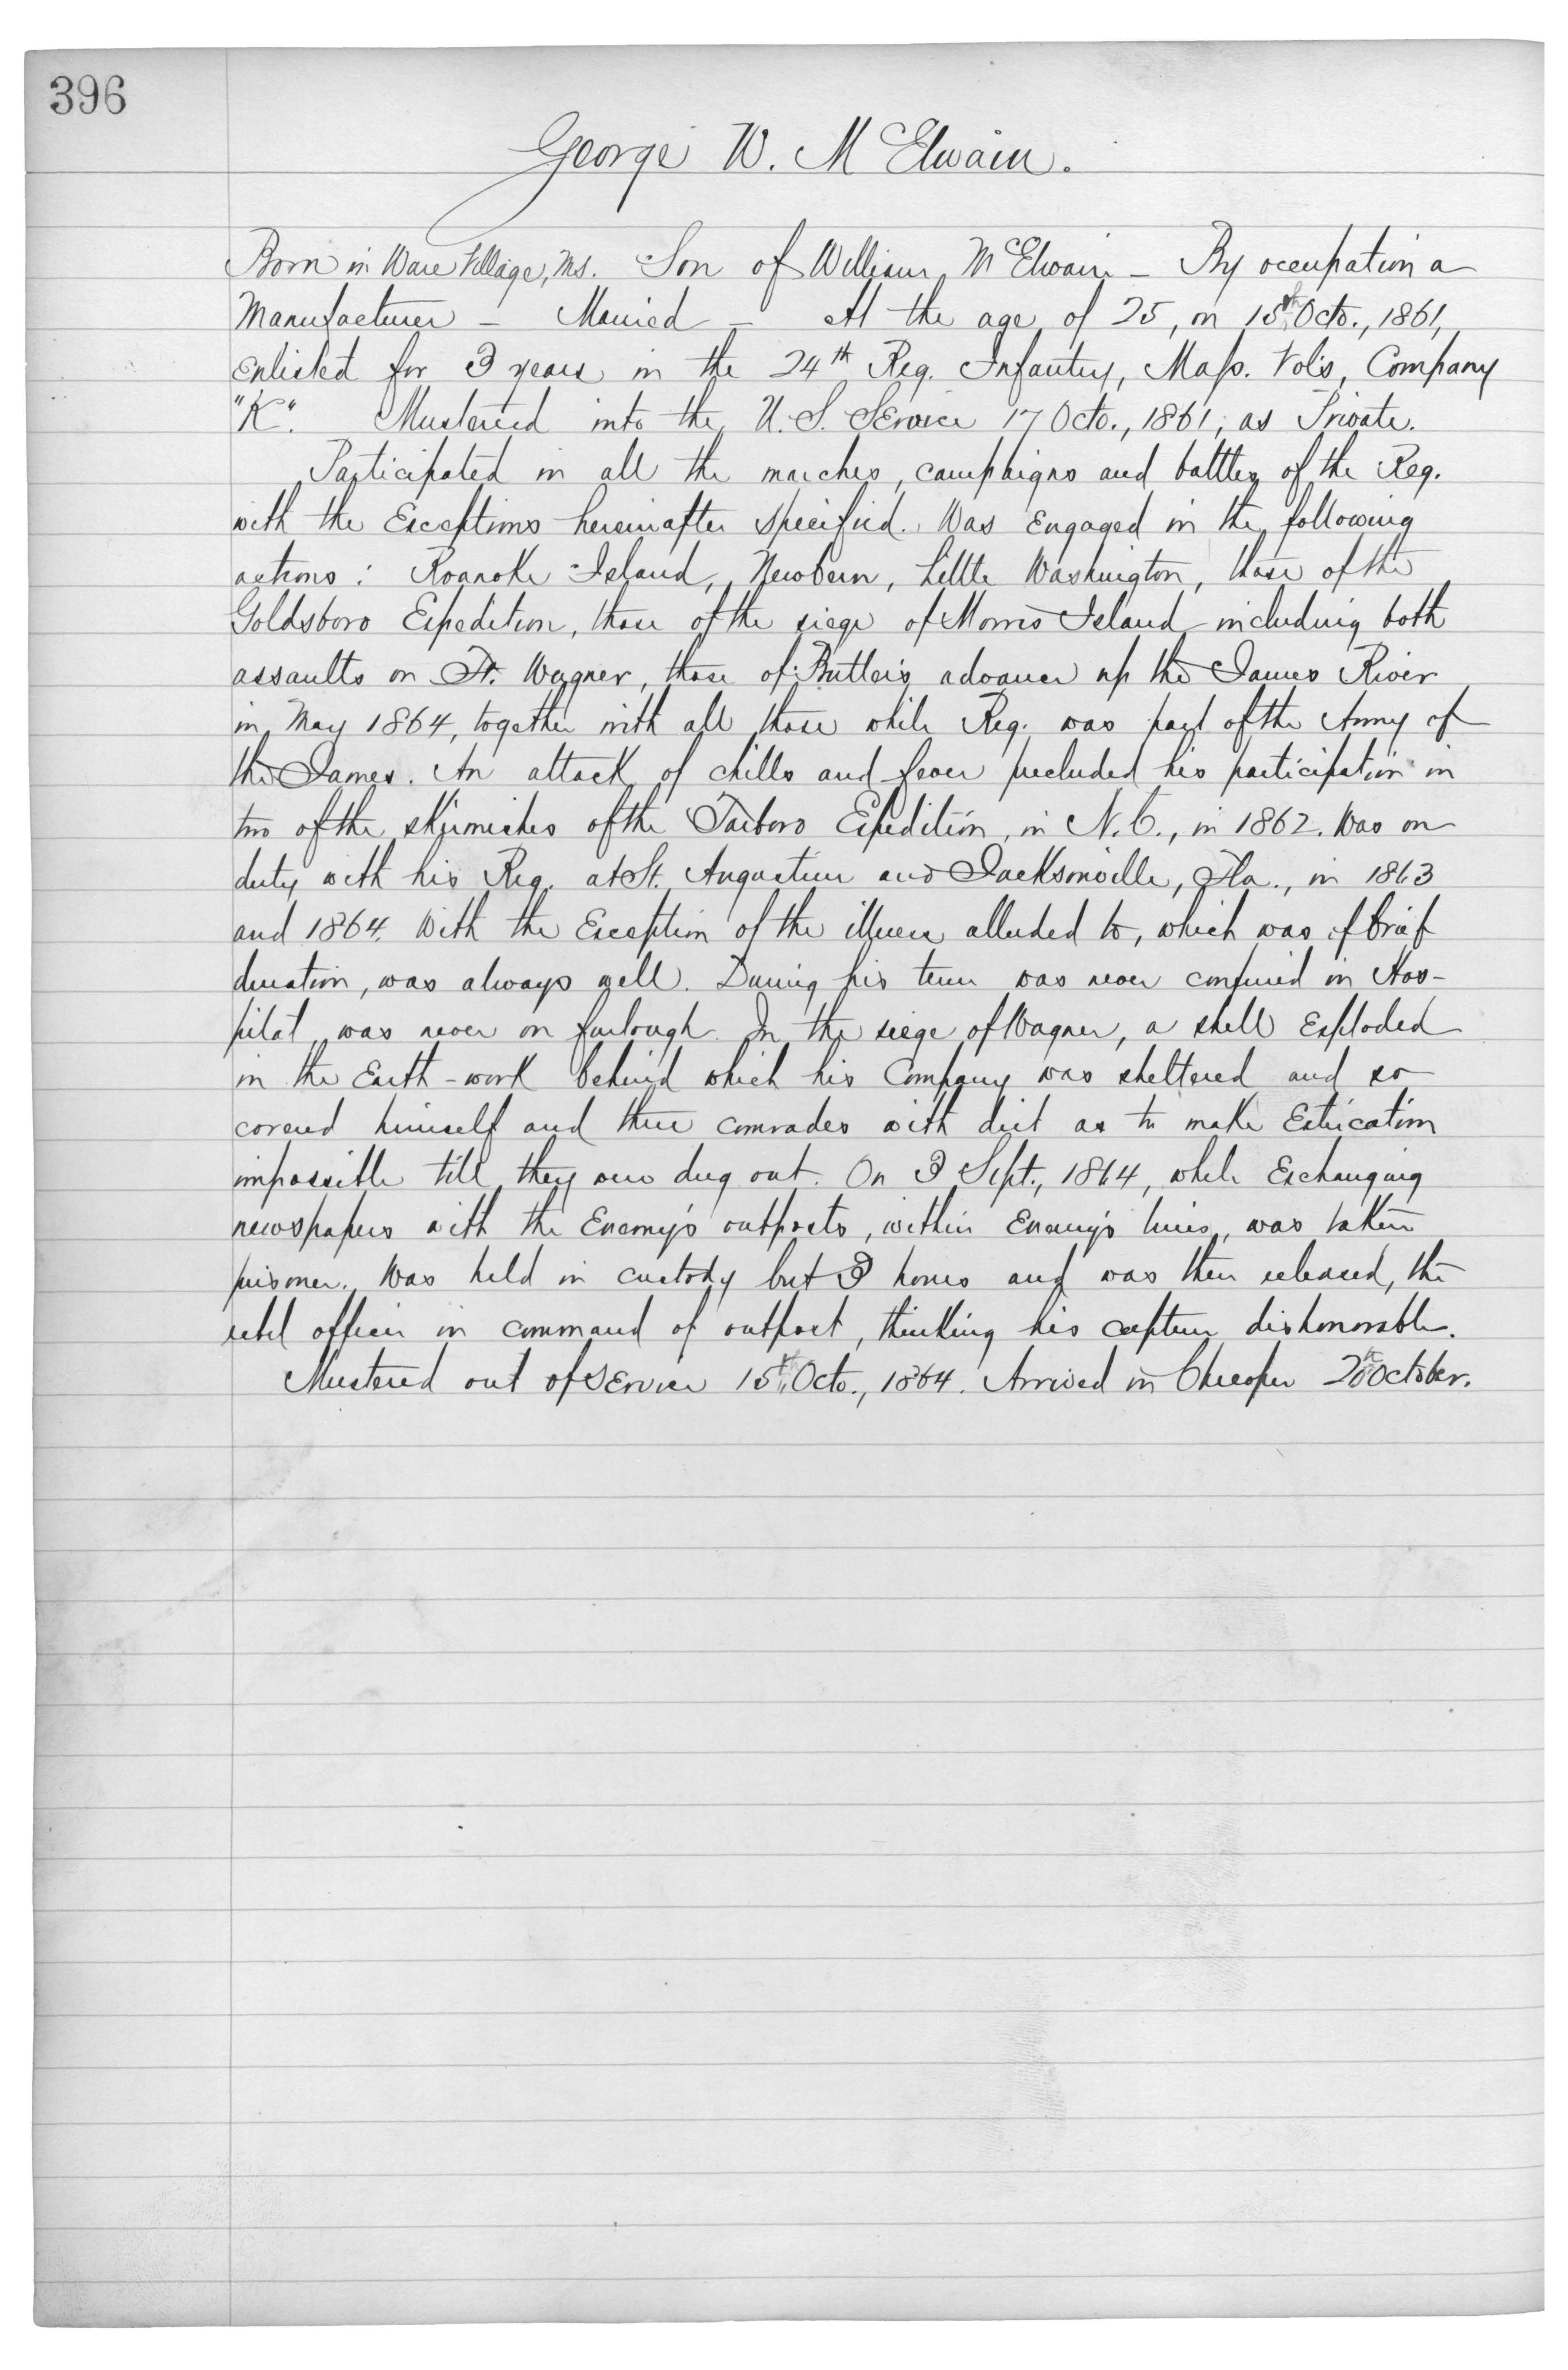 396
George W. McElwain.
Born in Ware Village, Ms. Son of William McElwain – By occupation a
Manufacturer – Married – At the age of 25, on 15th Octo., 1861,
Enlisted for 3 years in the 24th Reg. Infantry, Mass. Vols, Company
"K". Mustered into the U.S. Service 17 Octo., 1861, as Private.
Participated in all the marches, campaigns and battles of the Reg.
with the Exceptions hereinafter specified. Was Engaged in the following
actions: Roanoke Island, Newbern, Little Washington, those of the
Goldsboro Expedition, those of the siege of Morris Island including both
assaults on Ft. Wagner, those of Butler's advance up the James River
in May 1864, together with all those while Reg. was part of the Army of
the James. An attack of chills and fever precluded his participation in
two of the skirmishes of the Tarboro Expedition, in N.C., in 1862. Was on
duty with his Reg. at St. Augustine and Jacksonville, Fla., in 1863
and 1864. With the Exception of the illness alluded to, which was of brief
duration, was always well. During his term was never confined in Hos-
pital, was never on furlough. In the siege of Wagner, a shell Exploded
in the Earth-work behind which his Company was sheltered and so
covered himself and three comrades with dirt as to make Extrication
impossible till they were dug out. On 3 Sept., 1864, while Exchanging
newspapers with the Enemy's outposts, within Enemy's lines, was taken
prisoner. Was held in custody but 3 hours and was then released, the
rebel officer in command of outpost, thinking his capture dishonorable.
Mustered out of Service 15th Octo., 1864. Arrived in Chicopee 20th October.